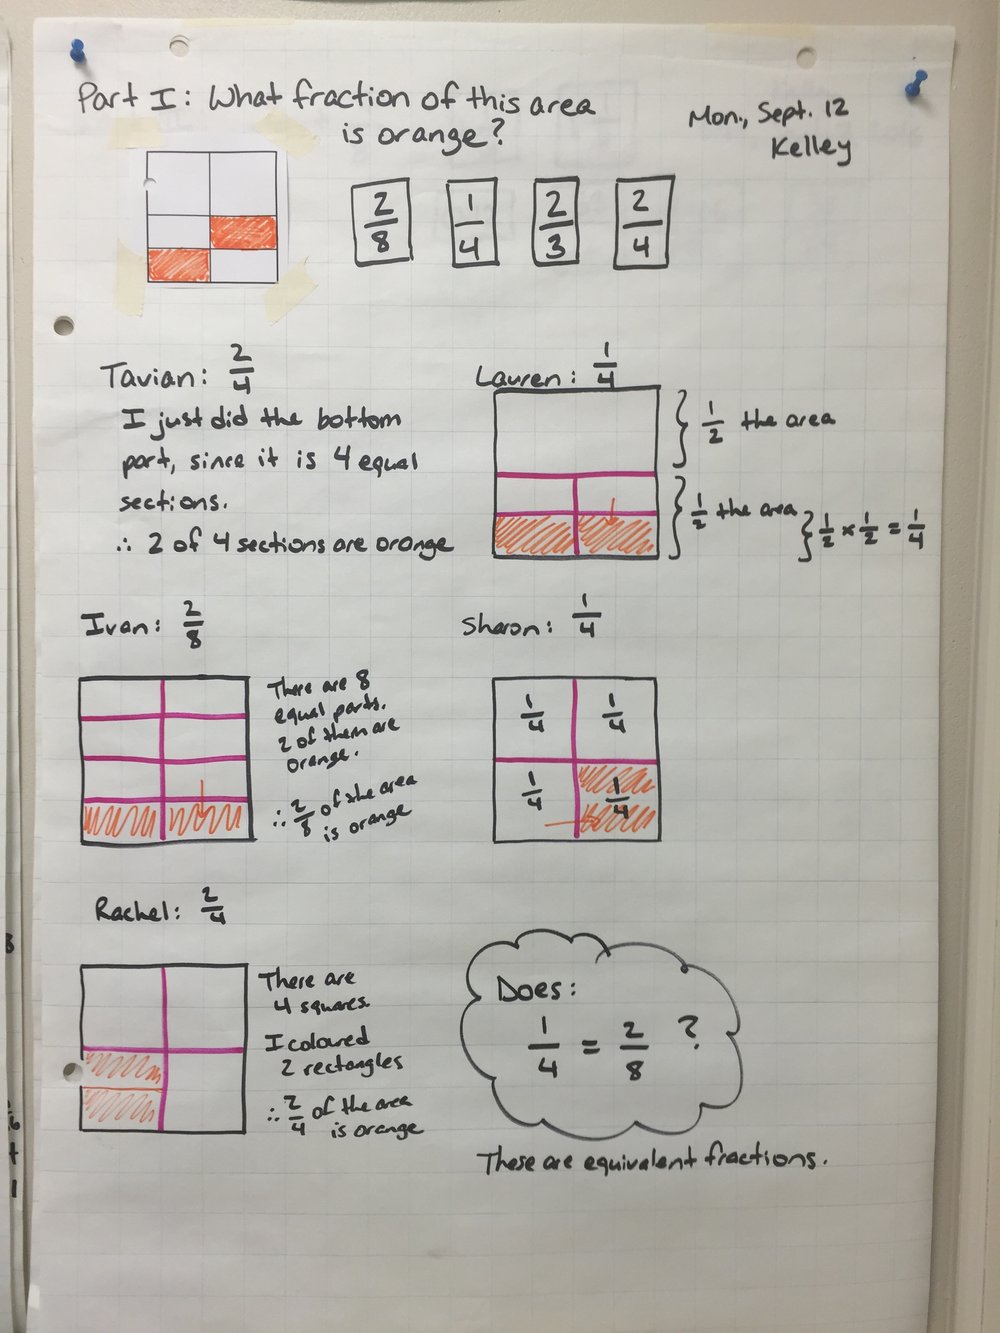 Part I: What fraction of this area
is orange?
Mon., Sept. 12
Kelley
2/8 1/4 2/3 2/4
Tavian: 2/4
I just did the bottom
part, since it is 4 equal
sections.
∴ 2 of 4 sections are orange
Lauren: 1/4
} 1/2 the area
} 1/2 the area
} 1/2 × 1/2 = 1/4
Ivan: 2/8
There are 8
equal parts.
2 of them are
orange.
∴ 2/8 of the area
is orange
Sharon: 1/4
1/4 1/4
1/4 1/4
Rachel: 2/4
There are
4 squares.
I coloured
2 rectangles
∴ 2/4 of the area
is orange
Does:
1/4 = 2/8 ?
These are equivalent fractions.